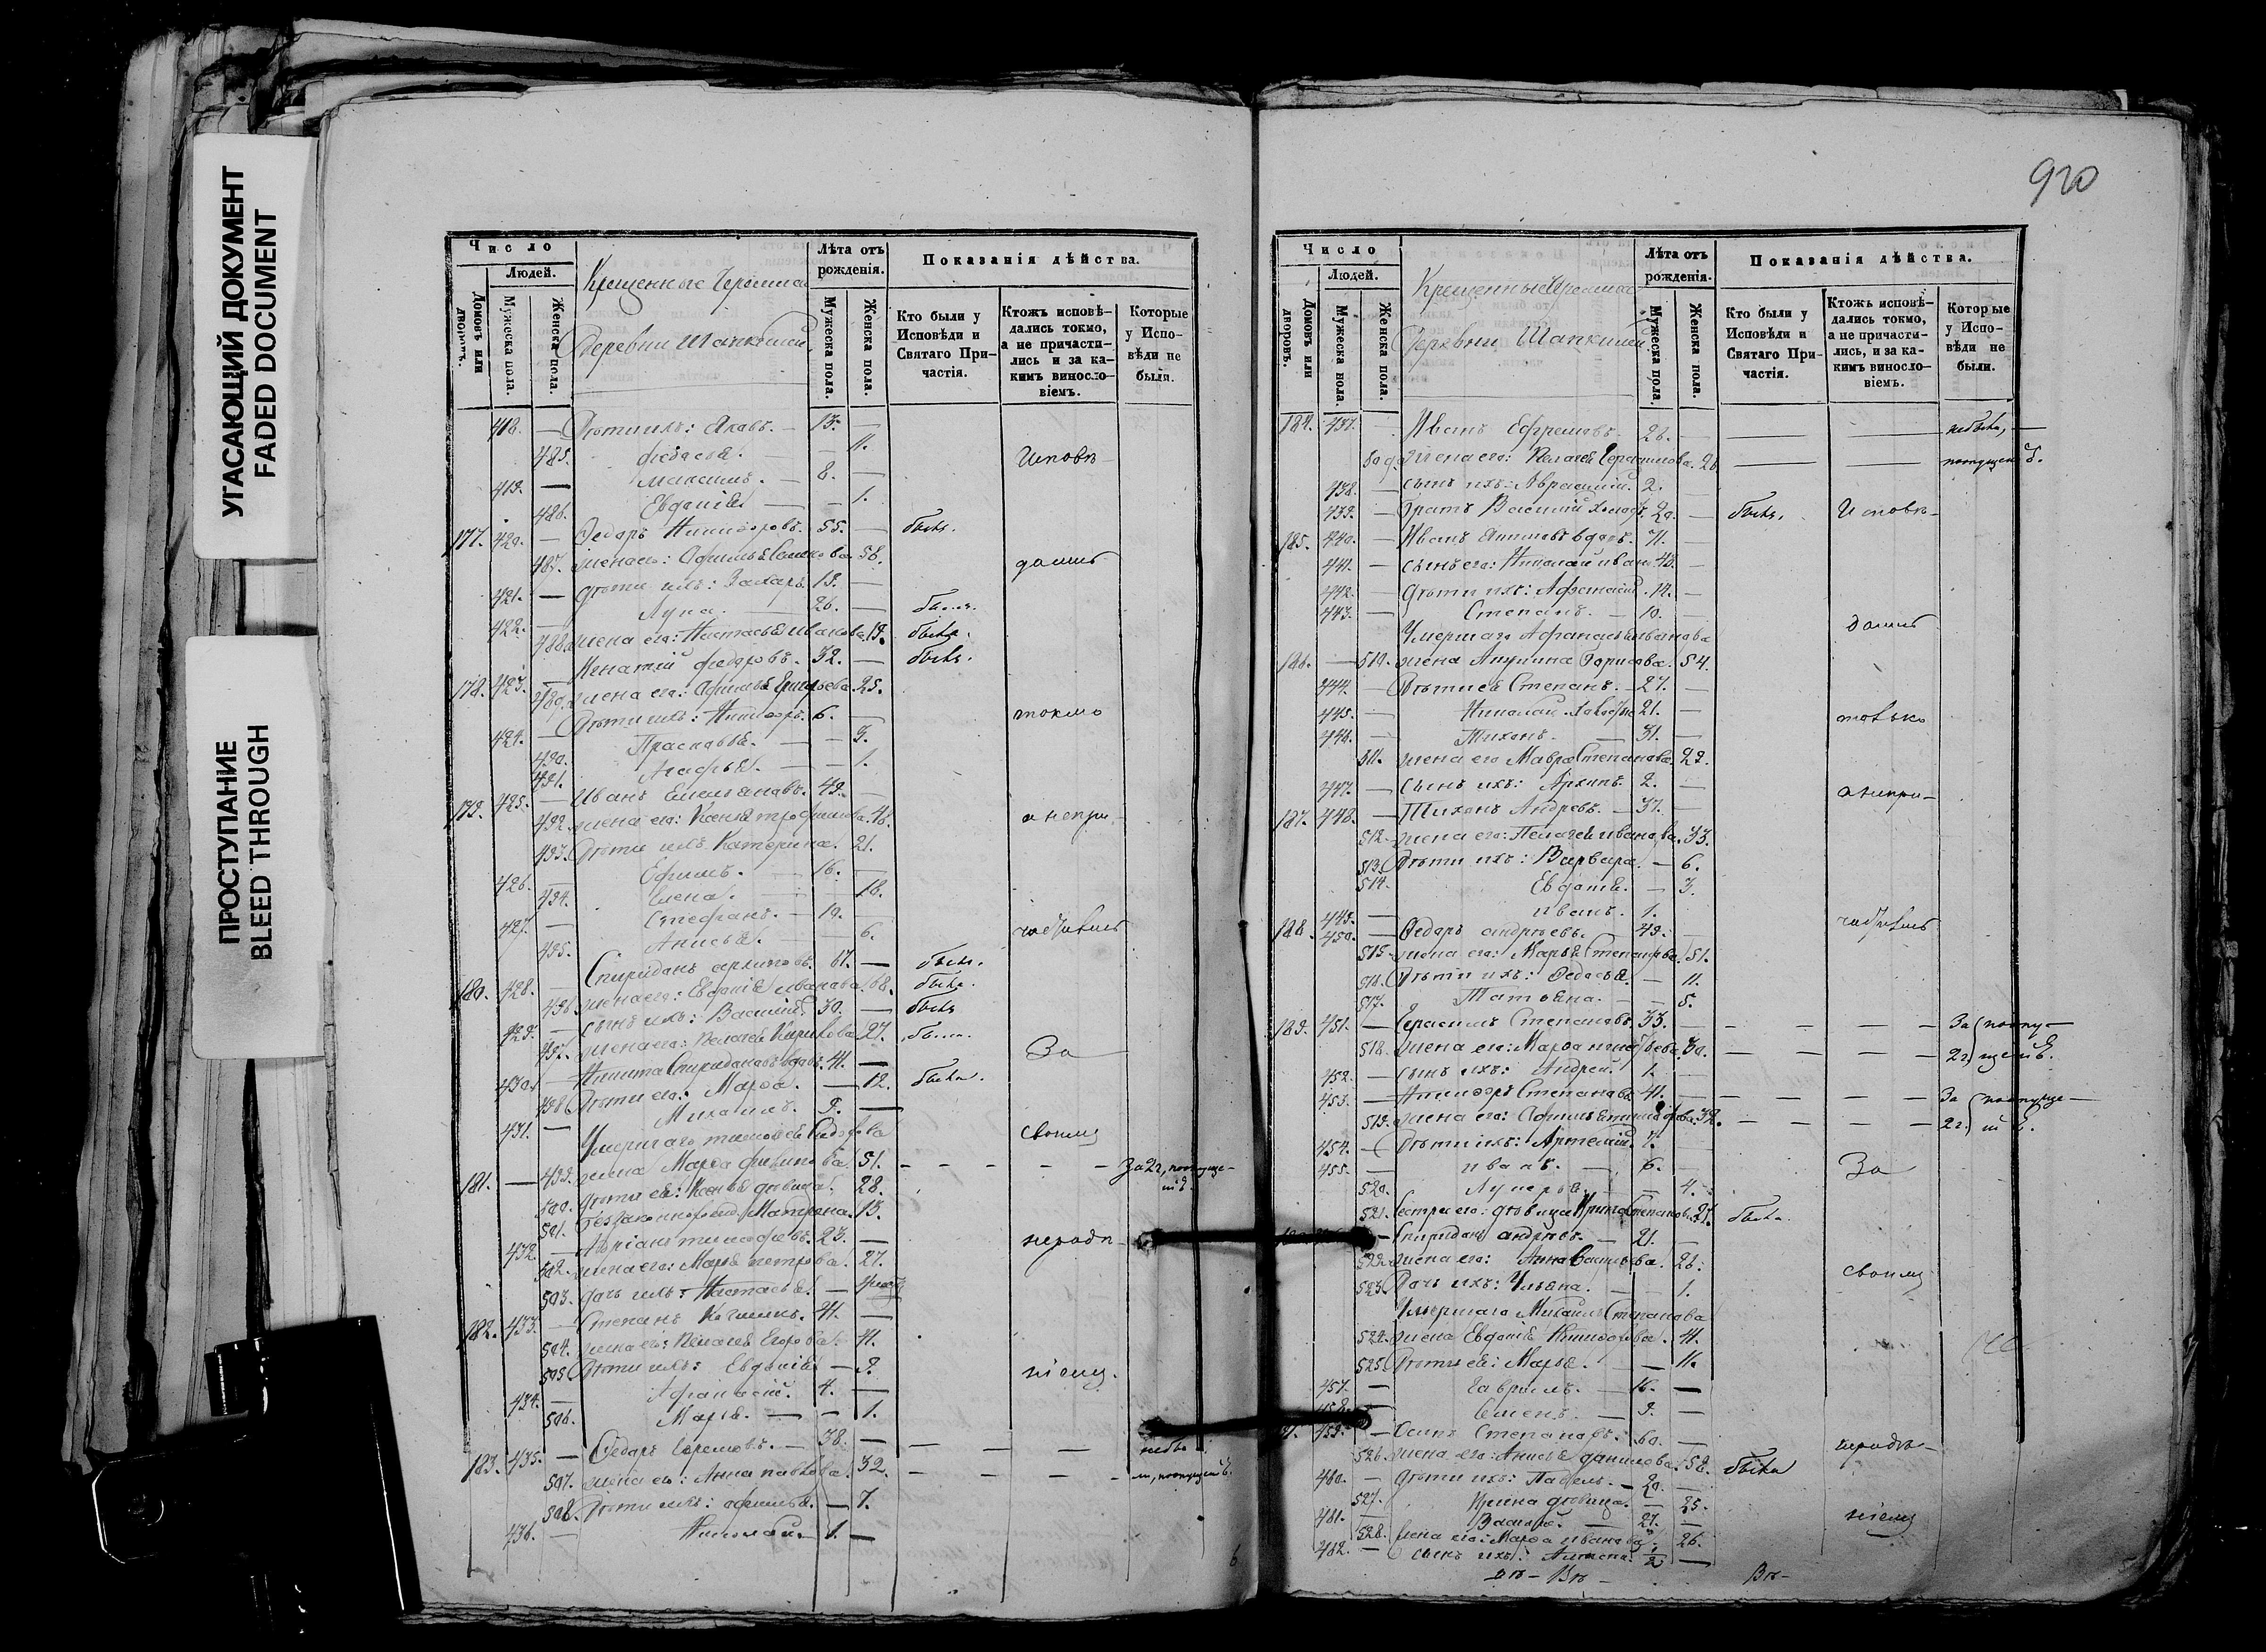 УГАСАЮЩИЙ ДОКУМЕНТ
FADED DOCUMENT
ПРОСТУПАНИЕ
BLEED THROUGH
Число
Людей.
Домовъ или дворовъ.
Мужеска пола.
Женска пола.
Крещенные
Деревни
Лѣта отъ рожденія.
Мужеска пола.
Женска пола.
Показанія дѣйства.
Кто были у Исповѣди и Святаго Причастія.
Ктожъ исповѣ-
дались токмо,
а не причасти-
лись и за ка-
кимъ винослo-
віемъ.
Которые
у Испо-
вѣди не
были.
418. — Дѣти ихъ: Яковъ. — 13. —
485. Федосья. — 11. Исповѣ-
419. — Максимъ. — 8. —
486. Евдокія — — 1.
177. 420. — Федоръ Никифоровъ. 55. — были.
487. жена его: Афимья 56. домъ
421. — дѣти ихъ: Захаръ 19. —
422. — Лука. — 26. — были.
488. жена его: Настасья иванова. 19. были.
178. 423. — Игнатій федоровъ. 32. — были.
489. жена его: Афимья Григорьева 25.
424. — Дѣти ихъ: Никифоръ. 6. — токмо
490. Прасковья. — — 3.
491. Агафья. — — 1.
179. 425. — Иванъ Емельяновъ. 49. —
492. жена его: Ксенья трофимова. 46. а непри
493. Дѣти ихъ Катерина. 21.
426. — Ефимъ. — 16. —
494. Елена. — 18.
427. — Стефанъ. — 10. —
495. Анисья. — — 6.
180. 428. — Спиридонъ архиповъ. 67. — были.
496. жена его: Евдокія иванова. 68. были.
429. — сынъ ихъ: Василій. 30. — были
497. жена его: Пелагея Кирилова 27. были.
430. — Никита Спиридоновъ вдовъ. 41. — За
498. Дѣти его: Марфа. — 12. были.
431. — Михаилъ. 9. —
Умершаго тимофея своимъ
181. — 499. жена Марфа филипова. 51. — — — — — За 2г, по опуще-
нію.
500. Дѣти ея: Ксенья дѣвица. 28.
501. Матрена. 13.
432. — Адріанъ тимофеевъ. 23. — неради
502. жена его: Марья петрова. 27.
503. дочь ихъ: Настасья. —
182. 433. — Степанъ 41. —
504. жена его: Пелагея Егорова. 41.
505. Дѣти ихъ: Евдокія — 9. ніемъ.
434. — Афанасій. 4. —
506. Марья. — — 1.
183. 435. — Федоръ Ефремовъ. — 38. — — — — небы
507. жена его: Анна павлова. 32. — — — — ли, по опущенію.
508. Дѣти ихъ: афимья. — 7.
436. — Николай. — 1. —
6
920
Число
Людей.
Домовъ или дворовъ.
Мужеска пола.
Женска пола.
Крещенные
Деревни
Лѣта отъ рожденія.
Мужеска пола.
Женска пола.
Показанія дѣйства.
Кто были у Исповѣди и Святаго Причастія.
Ктожъ исповѣ-
дались токмо,
а не причасти-
лись, и за ка-
кимъ виносло-
віемъ.
Которые
у Испо-
вѣди не
были.
184. 437. Иванъ Ефремовъ. 26. — — — небыли, —
509. жена его: Пелагея Герасимова. 26 — — по опущенію.
438. — сынъ ихъ: Авраамій. 2. —
439. — Братъ Василій холостъ. 20. — были. Исповѣ-
185. 440. — Иванъ вдовъ. 71. —
441. — сынъ его: Николай иванъ 43. —
442. — Дѣти ихъ: Афанасій. 14. —
443. — Степанъ. — 10. — домъ
Умершаго Афанасья иванова
186. — 510. жена Акулина Борисова. 54.
444. — Дѣти ея Степанъ. — 27. —
445. — Николай. 21. — только
446. — Тихонъ. — 31. —
511. жена его Мавра Степанова. 22.
447. — сынъ ихъ: Архипъ. 2. — а непри-
187. 448. — Тихонъ Андреевъ. — 37. —
512. жена его: Пелагея иванова. 33.
513. Дѣти ихъ: Варвара. — 6.
514. Евдокія. — 3.
449. — иванъ. 1. —
188. 450. — Федоръ андреевъ. — 49. —
515. жена его: Марья Степанова. 51.
516. Дѣти ихъ: Федосья. — 11.
517. Татьяна. — — 5.
189. 451. — Герасимъ Степановъ. 33. — — — — — За по опу-
518. жена его: Марфа 30. — — — — 2г. щенію.
452. — сынъ ихъ: Андрей. 1. —
453. — Никифоръ Степановъ 41. — — — — — За по опуще-
519. жена его: Афимья 32. — — — — 2г. нію.
454. — Дѣти ихъ: Артемій. 7. —
455. — иванъ. — 6. — За
520. Лукерья. — — 4.
521. Сестра его: дѣвица Ирина Степанова. 27. были.
— Спиридонъ андреевъ. — 21. —
522. жена его: Анна Васильева. 26. своимъ
523. Дочь ихъ: Ульяна. — — 1.
Умершаго Михаила Степанова
524. жена Евдокія Никифорова. 41.
525. Дѣти ея: Марья. — — 11.
457. — Гаврилъ. — 16. —
458. — Семенъ. — 9. —
459. — Осипъ Степановъ. 60. — неради-
526. жена его: Анисья данилова. 58. были
460. — Дѣти ихъ: Павелъ. — 20. —
527. Ирина дѣвица. — 25.
461. — Василій. — 27. — ніемъ
528. жена его: Марфа иванова 26.
462. — сынъ ихъ: 1/2 —